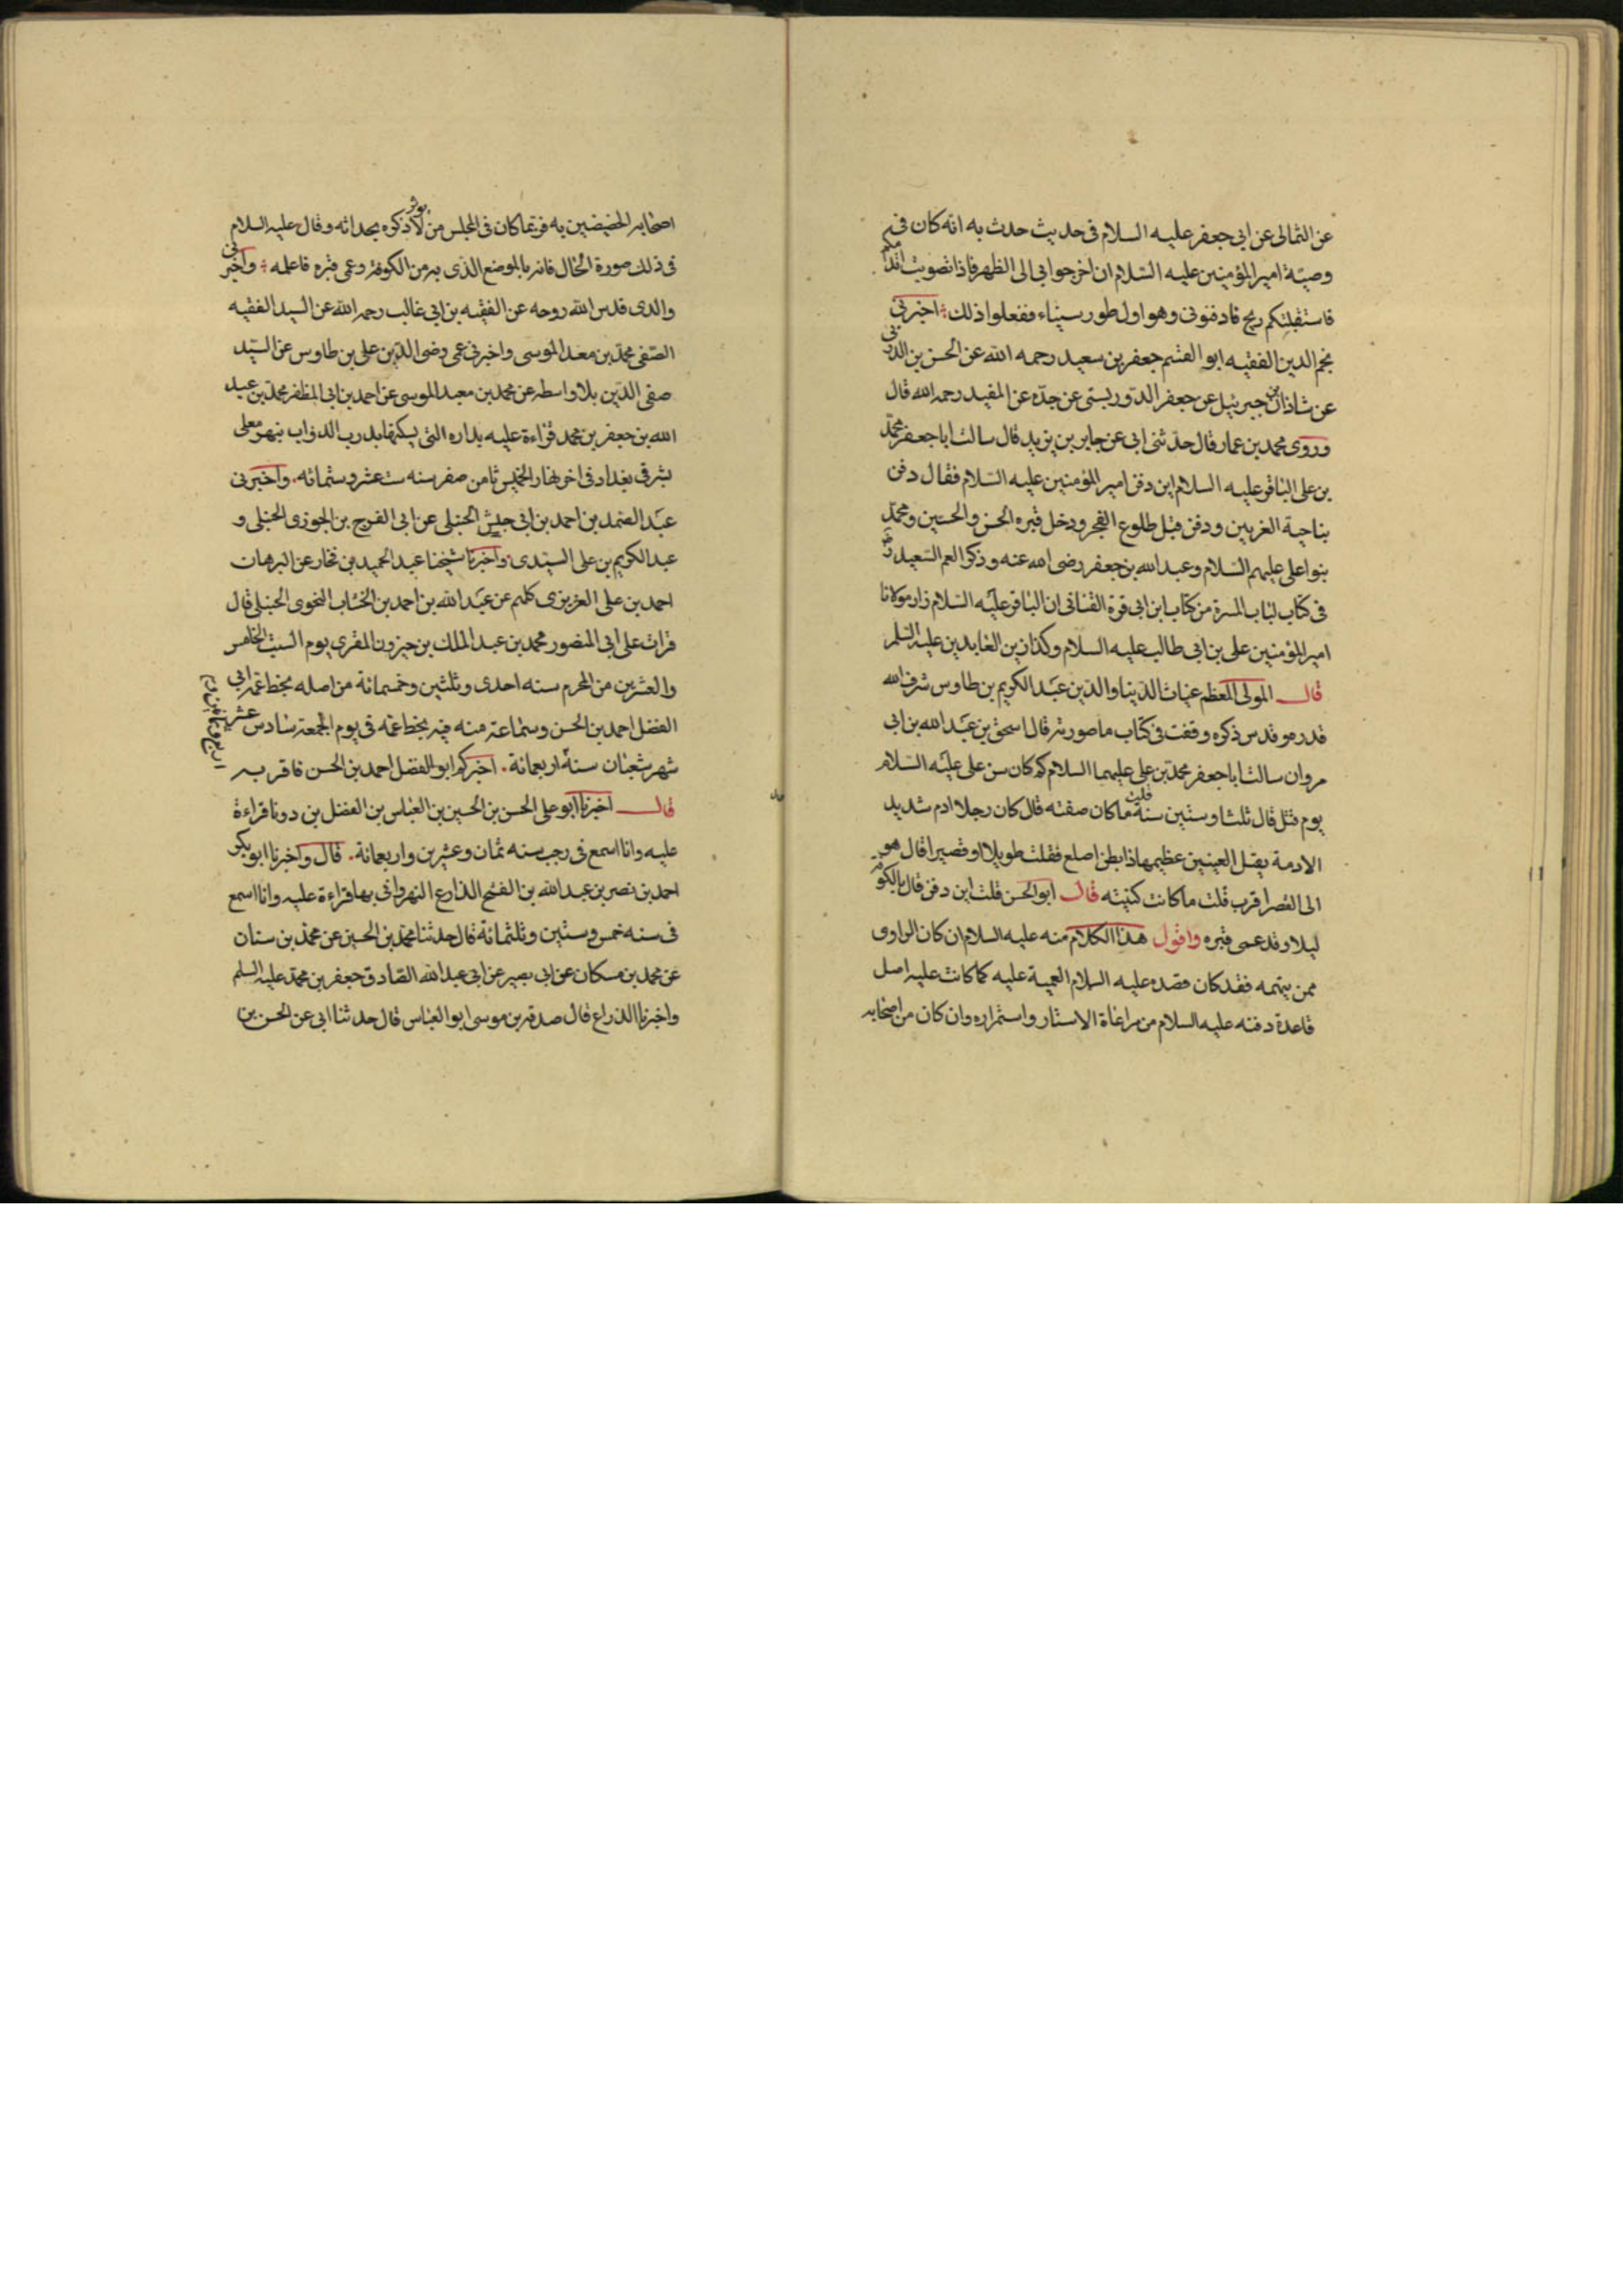 عن الثمالى عن ابى جعفر عليه السلام فى حديث حدث به انه كان فى
وصية امير المؤمنين عليه السلام ان اخرجوانى الى الظهر فاذا تصوبت اقدامكم
فاستقبلتكم ريح فادفنونى وهو اول طور سيناء ففعلوا ذلك اخبرنى
نجم الدين الفقيه ابو القسم جعفر بن سعيد رحمه الله عن الحسن بن الدربى
عن شاذان بن جبرئيل عن جعفر الدوريستى عن جده عن المفيد رحمه الله قال
وروى محمد بن عمار قال حدثنى ابى عن جابر بن يزيد قال سالت ابا جعفر محمد
بن على الباقر عليه السلام اين دفن امير المؤمنين عليه السلام فقال دفن
بناحية الغريين ودفن قبل طلوع الفجر ودخل قبره الحسن والحسين ومحمد
بنوا على عليهم السلام وعبد الله بن جعفر رضى الله عنه وذكر العم السعيد
فى كتاب لباب المسرة من كتاب ابن ابى قرة القنانى ان الباقر عليه السلام زار مولانا
امير المؤمنين على بن ابى طالب عليه السلام وكذا زين العابدين عليه السلم
قال المولى المعظم غياث الدنيا والدين عبد الكريم بن طاوس شرف الله
قدره وقدس ذكره وقفت فى كتاب ما صورته قال اسحق بن عبد الله بن ابى
مروان سالت ابا جعفر محمد بن على عليهما السلام كم كان سن على عليه السلام
يوم قتل قال ثلثا وستين سنة قلت ما كان صفته قال كان رجلا ادم شديد
الادمة ثقيل العينين عظيمها ذا بطن اصلع فقلت طويلا او قصيرا قال هو
الى القصر اقرب قلت ما كانت كنيته قال ابو الحسن قلت اين دفن قال بالكوفة
ليلا وقد عمى قبره واقول هذا الكلام منه عليه السلام ان كان الراوى
ممن يتهمه فقد كان قصده عليه السلام التعمية عليه كما كانت عليه اصل
قاعدة دفنه عليه السلام من مراعاة الاستتار واستمراره وان كان من اصحابه
اصحابه الخصيصين به فربما كان فى المجلس من لا يوثر ذكره بحداثه وقال عليه السلام
فى ذلك صورة الحال فانه بالموضع الذى به من الكوفة وعمى قبره فاعلمه واخبرنى
والدى قدس الله روحه عن الفقيه بن ابى غالب رحمه الله عن السيد الفقيه
الصفى محمد بن معد الموسى واخبرنى عمى رضى الدين على بن طاوس عن السيد
صفى الدين بلا واسطه عن محمد بن معد الموسى عن احمد بن ابى المظفر محمد بن عبد
الله بن جعفر بن محمد قراءة عليه بداره التى يسكنها بدرب الدواب بنهر معلى
بشرقى بغداد فى اخر نهار الخميس ثامن صفر سنه ست عشر وستمائه. واخبرنى
عبد الصمد بن احمد بن ابى جيش الحنبلى عن ابى الفرج بن الجوزى الحنبلى و
عبد الكريم بن على السيندى واخبرنا شيخنا عبد الحميد بن فخار عن البرهان
احمد بن على الغزيزى كلهم عن عبد الله بن احمد بن الخشاب النحوى الحنبلى قال
قرات على ابى المنصور محمد بن عبد الملك بن خيزون المقرى يوم السبت الخامس
والعشرين من المحرم سنه احدى وثلثين وخمسمائة من اصله بخط عمه ابى
الفضل احمد بن الحسن وسماعه منه فيه بخط عمه فى يوم الجمعة سادس عشر
شهر شعبان سنة اربعمائة. اخبركم ابو الفضل احمد بن الحسن فاقر به
قال اخبرنا ابو على الحسن بن الحسين بن العباس بن الفضل بن دوما قراءة
عليه وانا اسمع فى رجب سنه ثمان وعشرين واربعمائة. قال واخبرنا ابو بكر
احمد بن نصر بن عبد الله بن الفتح الذارع النهروانى بها قراءة عليه وانا اسمع
فى سنه خمس وستين وثلثمائة قال حدثنا محمد بن الحسين عن محمد بن سنان
عن محمد بن مسكان عن ابى بصير عن ابى عبد الله الصادق جعفر بن محمد عليه السلم
واخبرنا الذراع قال صدقه بن موسى ابو العباس قال حدثنا ابى عن الحسن بن